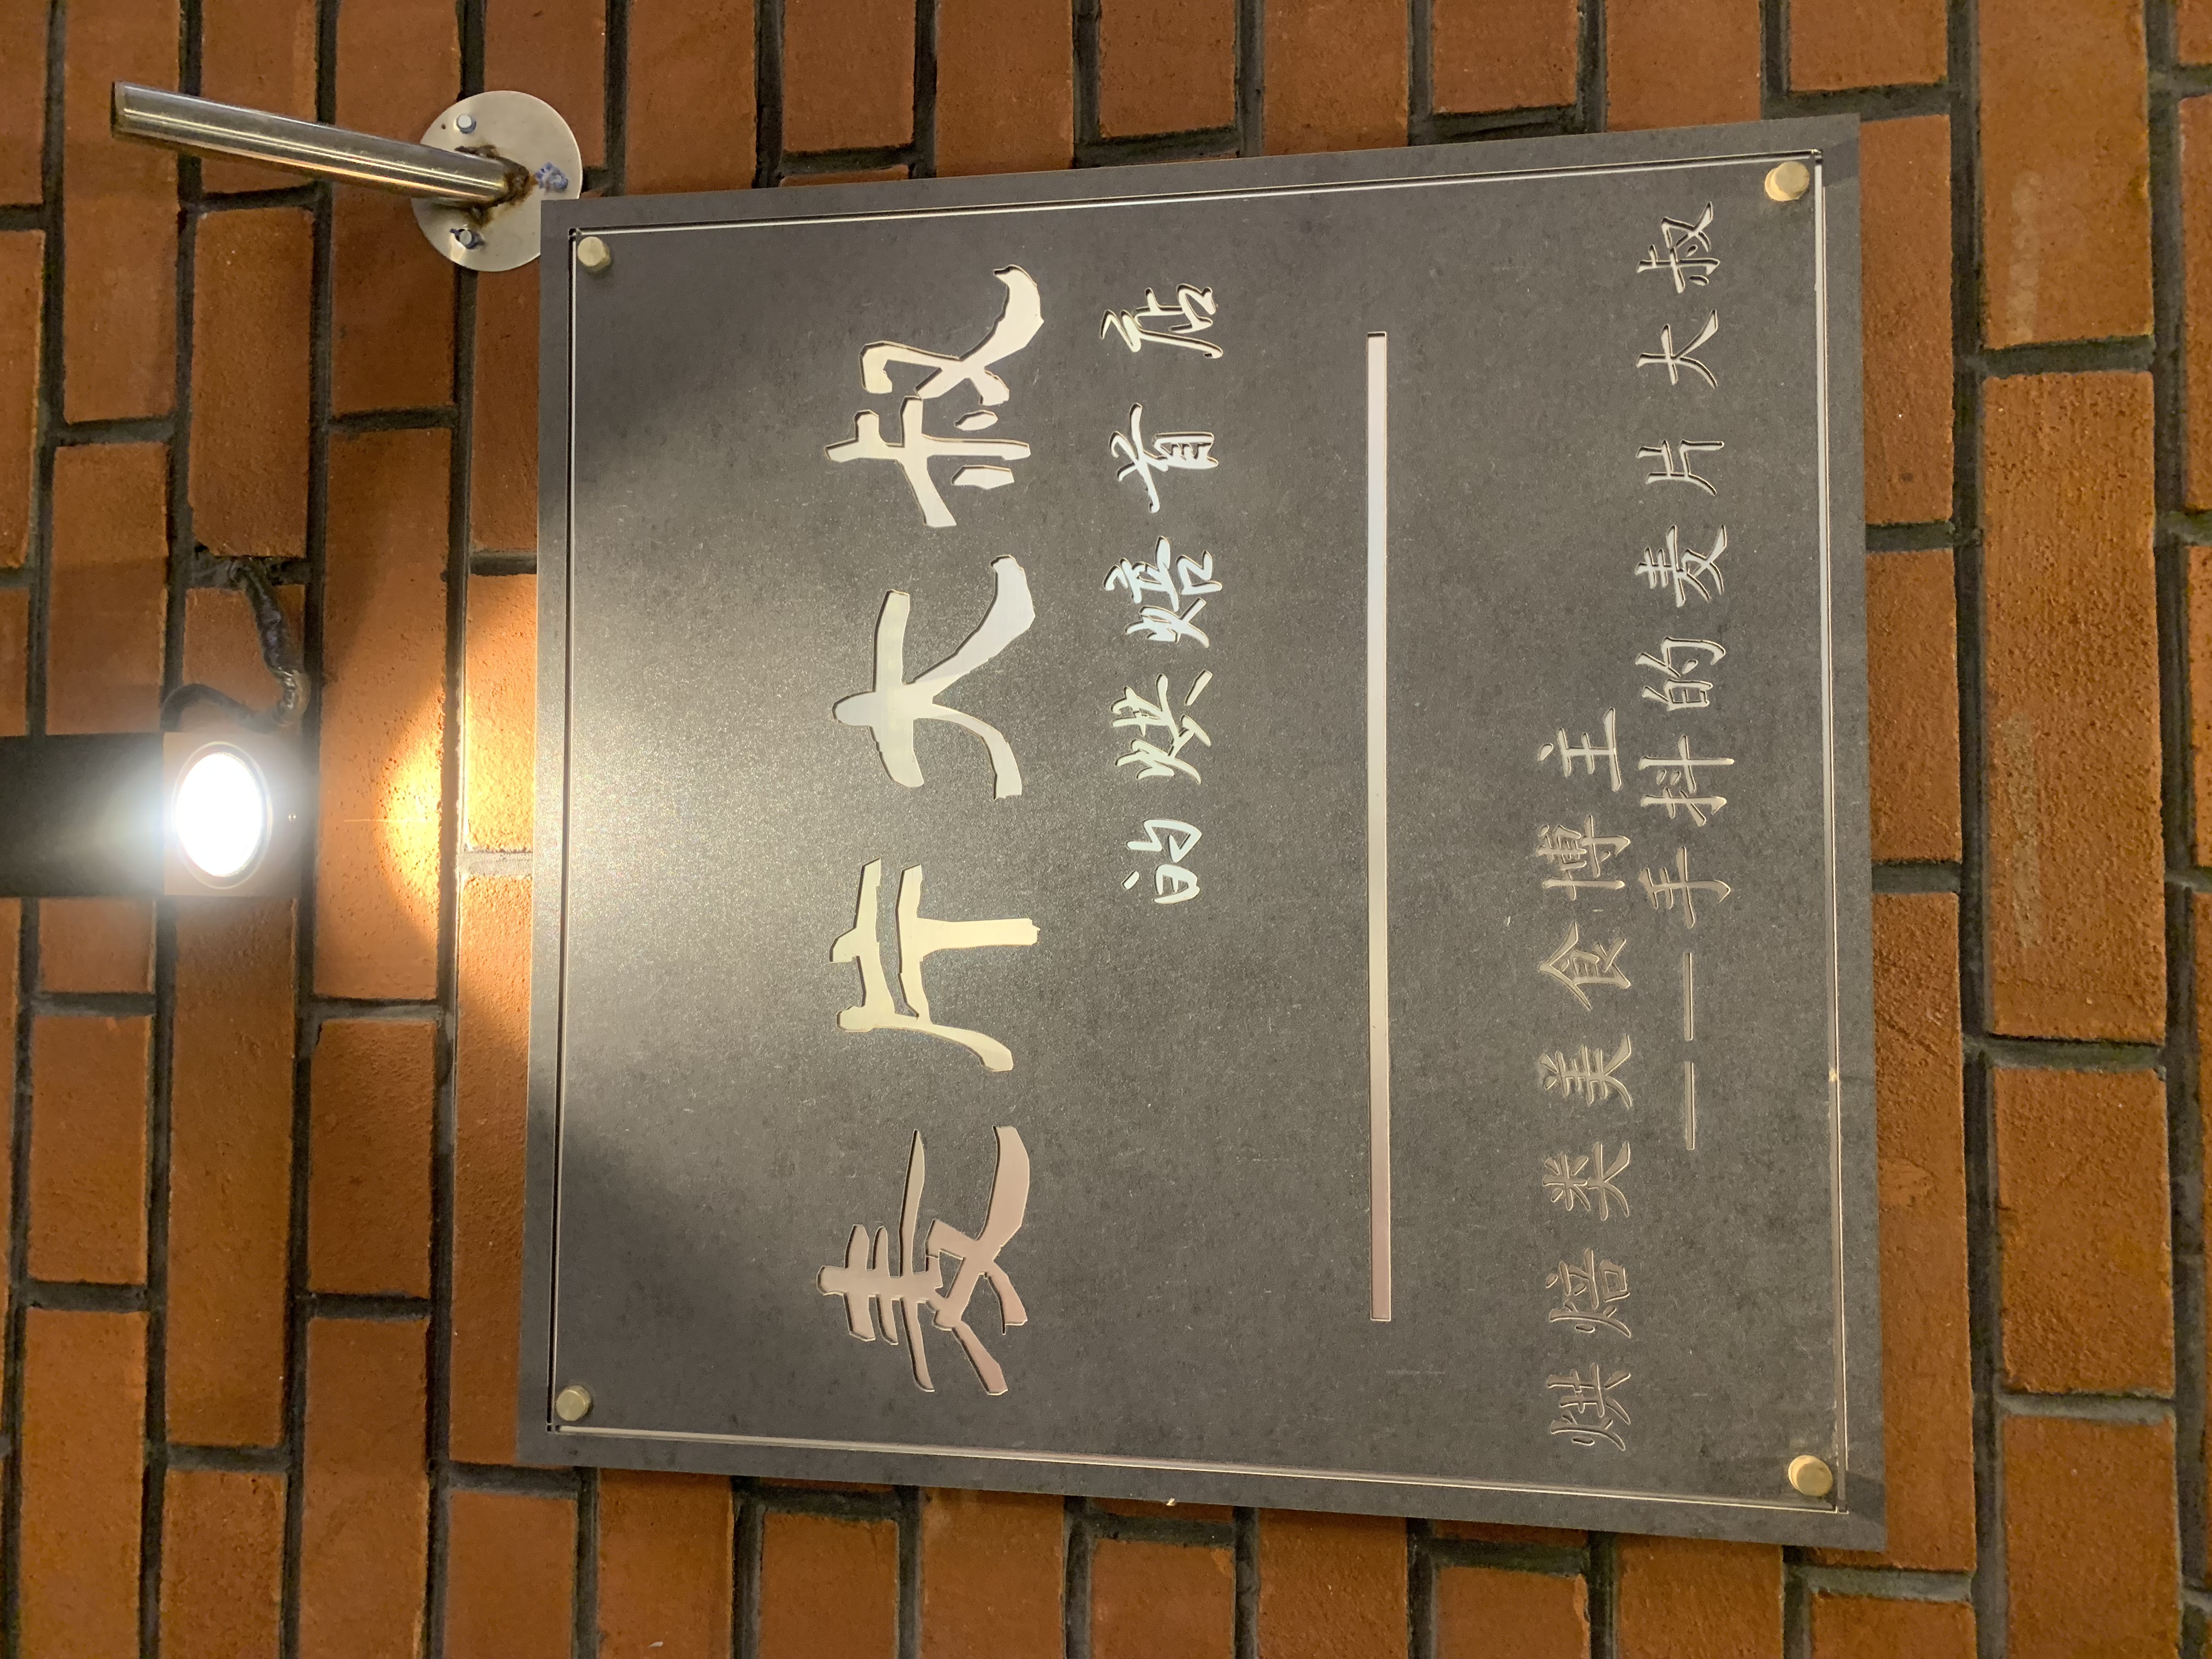 麦片大叔
的烘焙首店
烘焙类美食博主
——手抖的麦片大叔